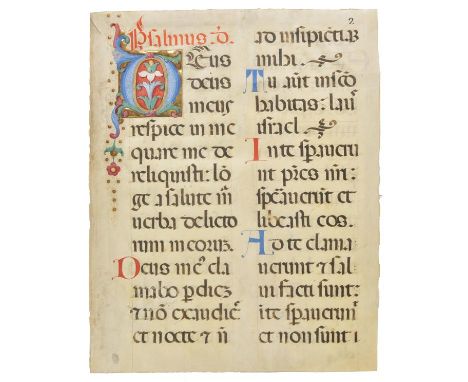 Psalmus. D.
Deus
deus
meus
respice in me
quare me de
reliquisti: lõ
ge a salute m̃
uerba delicto
rum meorum.
Deus me᷒ cla
mabo ꝑ diez
⁊ nõ exaudiet
et nocte ⁊ ñ
2
ad insipientiaz
mihi.
Tu aut̃ in scõ
habitas: laus
israel.
In te sperauerũ
unt p̃res nr̃i:
sperauerunt et
liberasti eos.
Ad te clama
uerunt ⁊ sal
ui facti sunt:
ĩ te sperauerũt
et non sunt